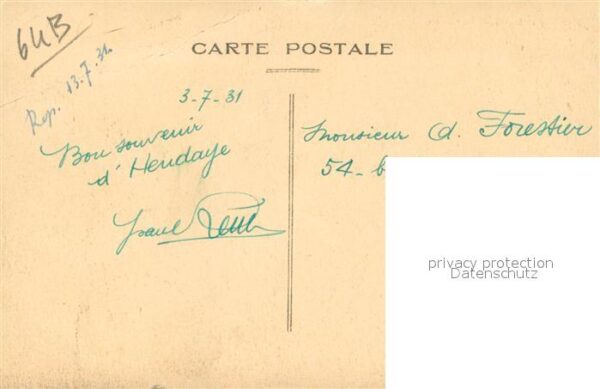 64B
Rep. 13.7.31.
CARTE POSTALE
3-7-31
Bon souvenir
d'Hendaye
Paul
Monsieur A. Forestier
54- b
privacy protection
Datenschutz